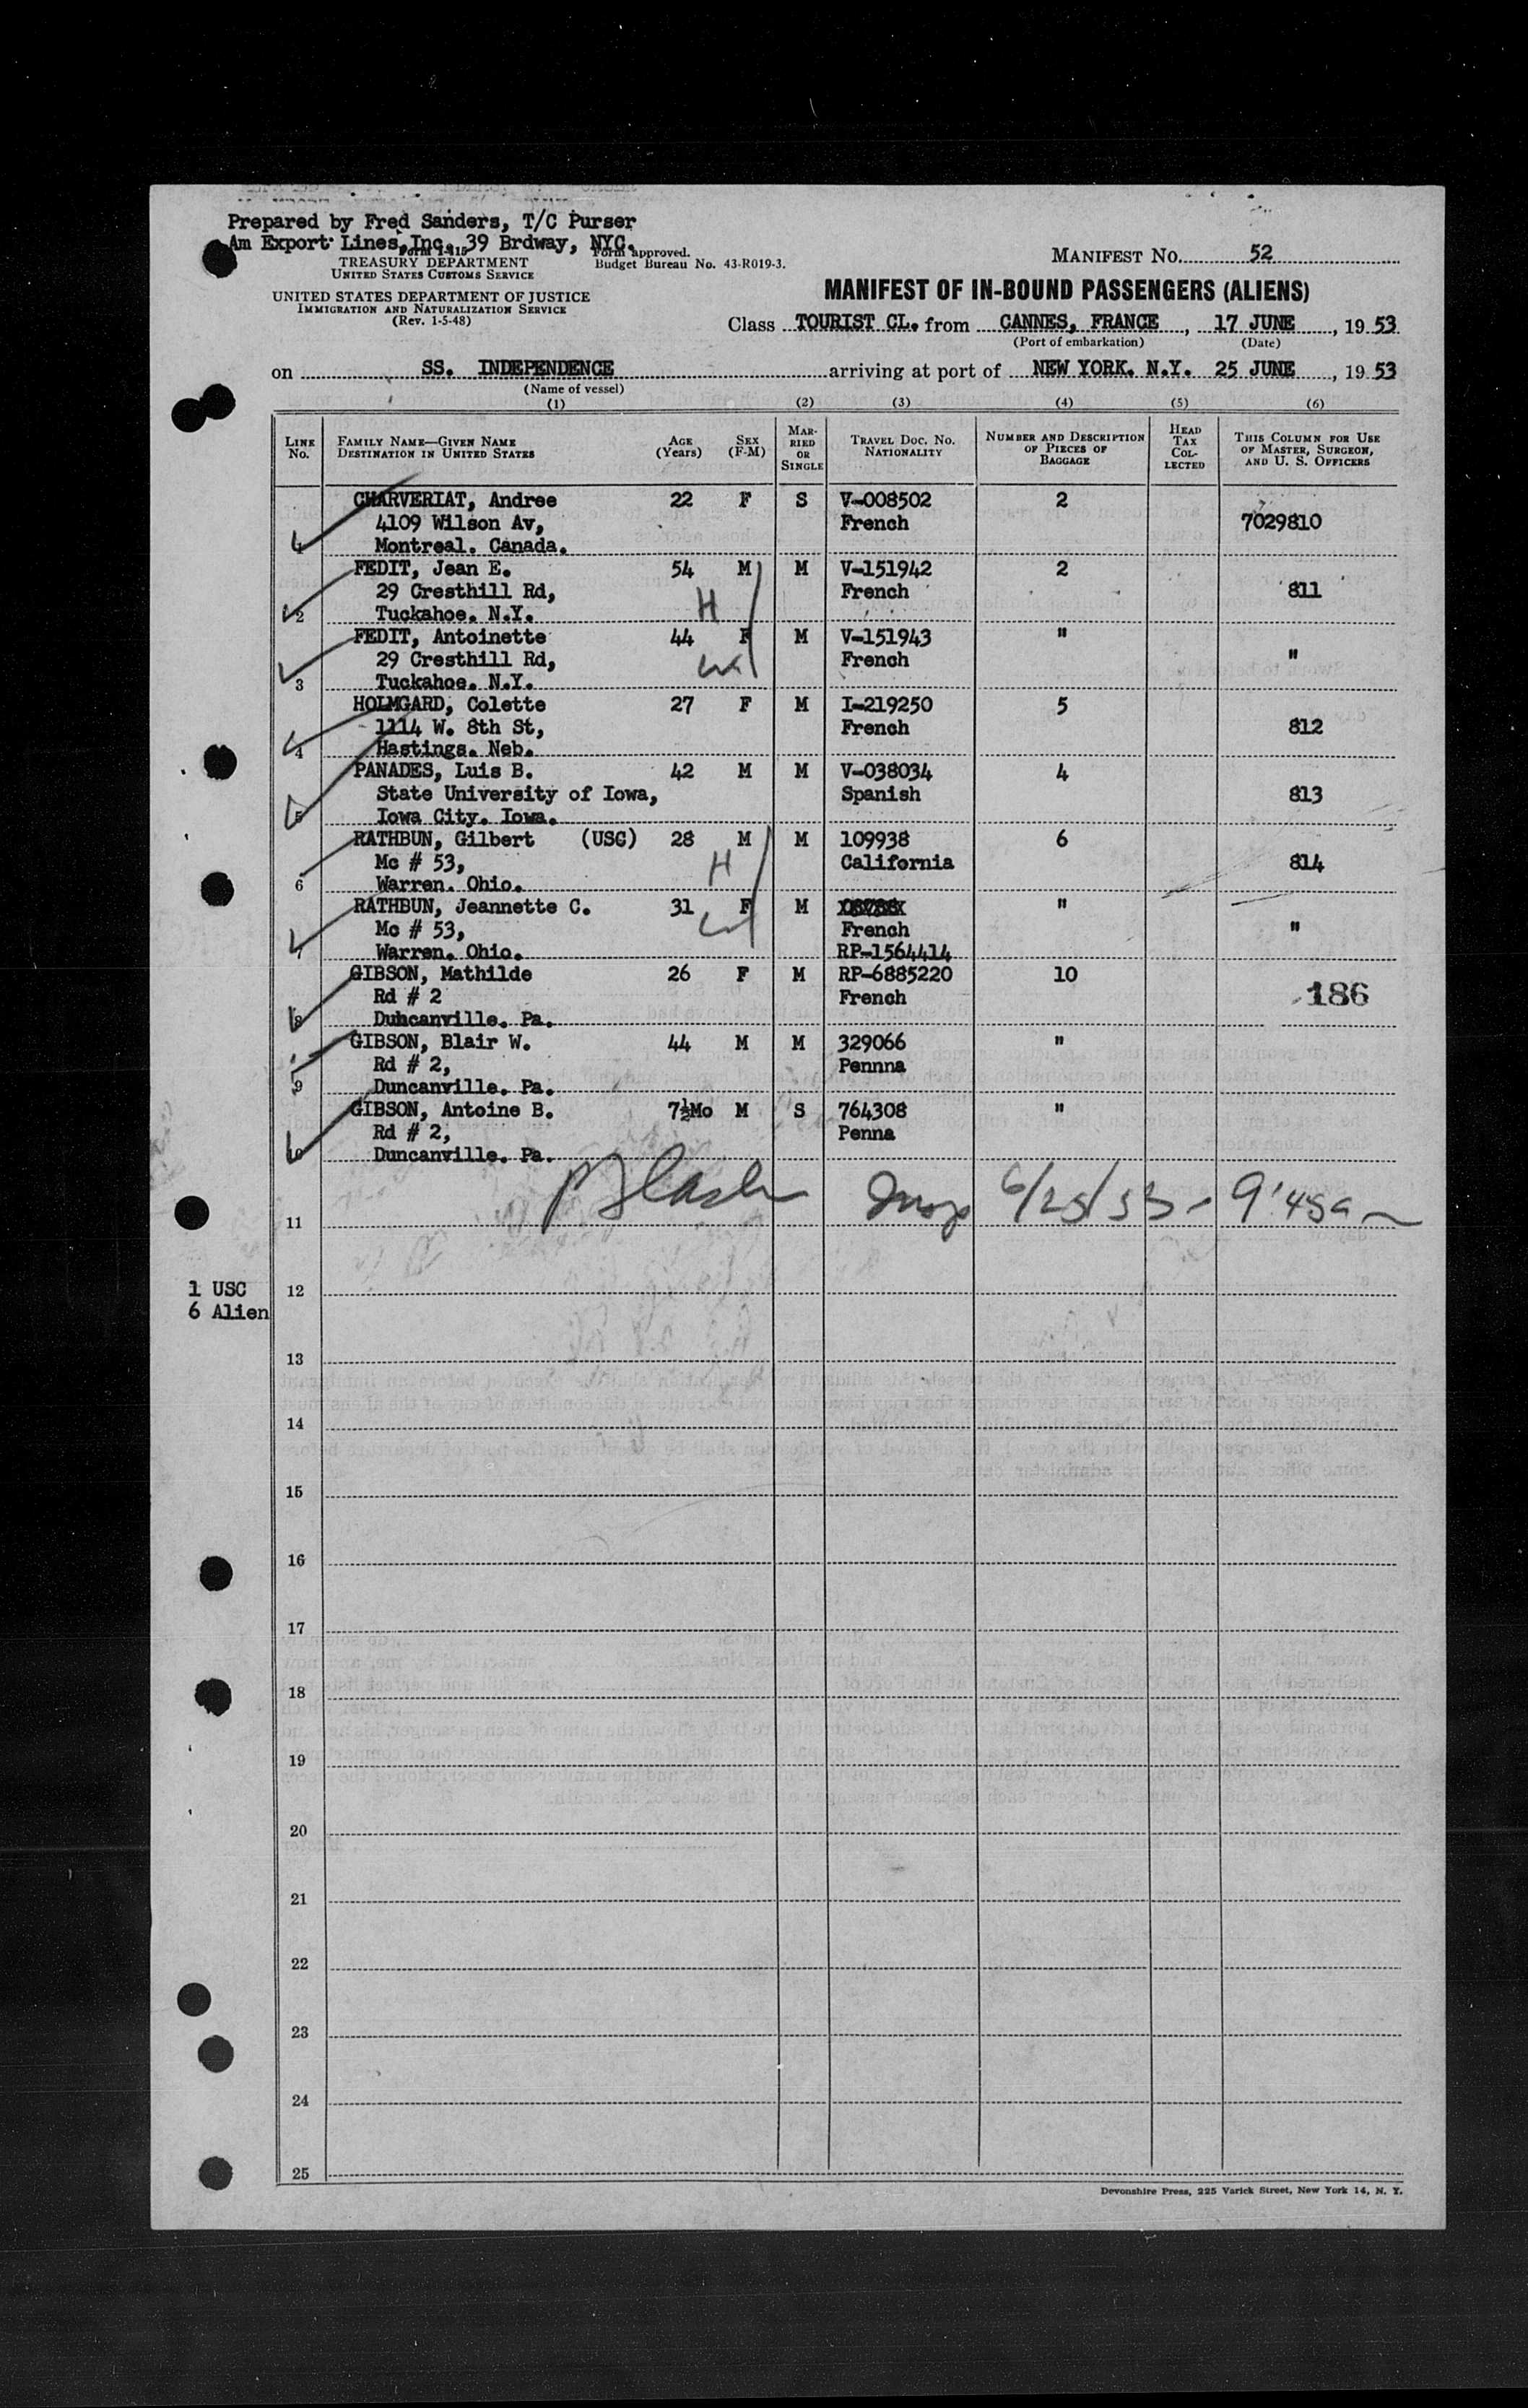 Prepared by Fred Sanders, T/C Purser
Am Export Lines, Inc. 39 Brdway, NYC.
Form I-415
TREASURY DEPARTMENT
UNITED STATES CUSTOMS SERVICE
Form approved.
Budget Bureau No. 43-R019-3.
UNITED STATES DEPARTMENT OF JUSTICE
IMMIGRATION AND NATURALIZATION SERVICE
(Rev. 1-5-48)
MANIFEST NO. 52
MANIFEST OF IN-BOUND PASSENGERS (ALIENS)
Class TOURIST CL. from CANNES, FRANCE, 17 JUNE, 19 53
(Port of embarkation) (Date)
on SS. INDEPENDENCE arriving at port of NEW YORK. N.Y. 25 JUNE, 19 53
(Name of vessel)
(1) (2) (3) (4) (5) (6)
LINE No. FAMILY NAME—GIVEN NAME DESTINATION IN UNITED STATES AGE (Years) SEX (F-M) MARRIED OR SINGLE TRAVEL DOC. NO. NATIONALITY NUMBER AND DESCRIPTION OF PIECES OF BAGGAGE HEAD TAX COLLECTED THIS COLUMN FOR USE OF MASTER, SURGEON, AND U. S. OFFICERS
CHARVERIAT, Andree 22 F S V-008502 2
4109 Wilson Av, French 7029810
1 Montreal. Canada.
FEDIT, Jean E. 54 M M V-151942 2
29 Cresthill Rd, H French 811
2 Tuckahoe. N.Y.
FEDIT, Antoinette 44 F M V-151943 "
29 Cresthill Rd, French "
3 Tuckahoe. N.Y.
HOLMGARD, Colette 27 F M I-219250 5
1114 W. 8th St, French 812
4 Hastings. Neb.
PANADES, Luis B. 42 M M V-038034 4
State University of Iowa, Spanish 813
5 Iowa City. Iowa.
RATHBUN, Gilbert (USC) 28 M M 109938 6
Mc # 53, H California 814
6 Warren. Ohio.
RATHBUN, Jeannette C. 31 F M "
Mc # 53, French "
7 Warren. Ohio. RP-1564414
GIBSON, Mathilde 26 F M RP-6885220 10
Rd # 2 French 186
8 Duhcanville. Pa.
GIBSON, Blair W. 44 M M 329066 "
Rd # 2, Pennna
9 Duncanville. Pa.
GIBSON, Antoine B. 7½Mo M S 764308 "
Rd # 2, Penna
10 Duncanville. Pa.
Insp 6/25/53 - 9:45a
11
1 USC
6 Alien
12
13
14
15
16
17
18
19
20
21
22
23
24
25
Devonshire Press, 225 Varick Street, New York 14, N. Y.